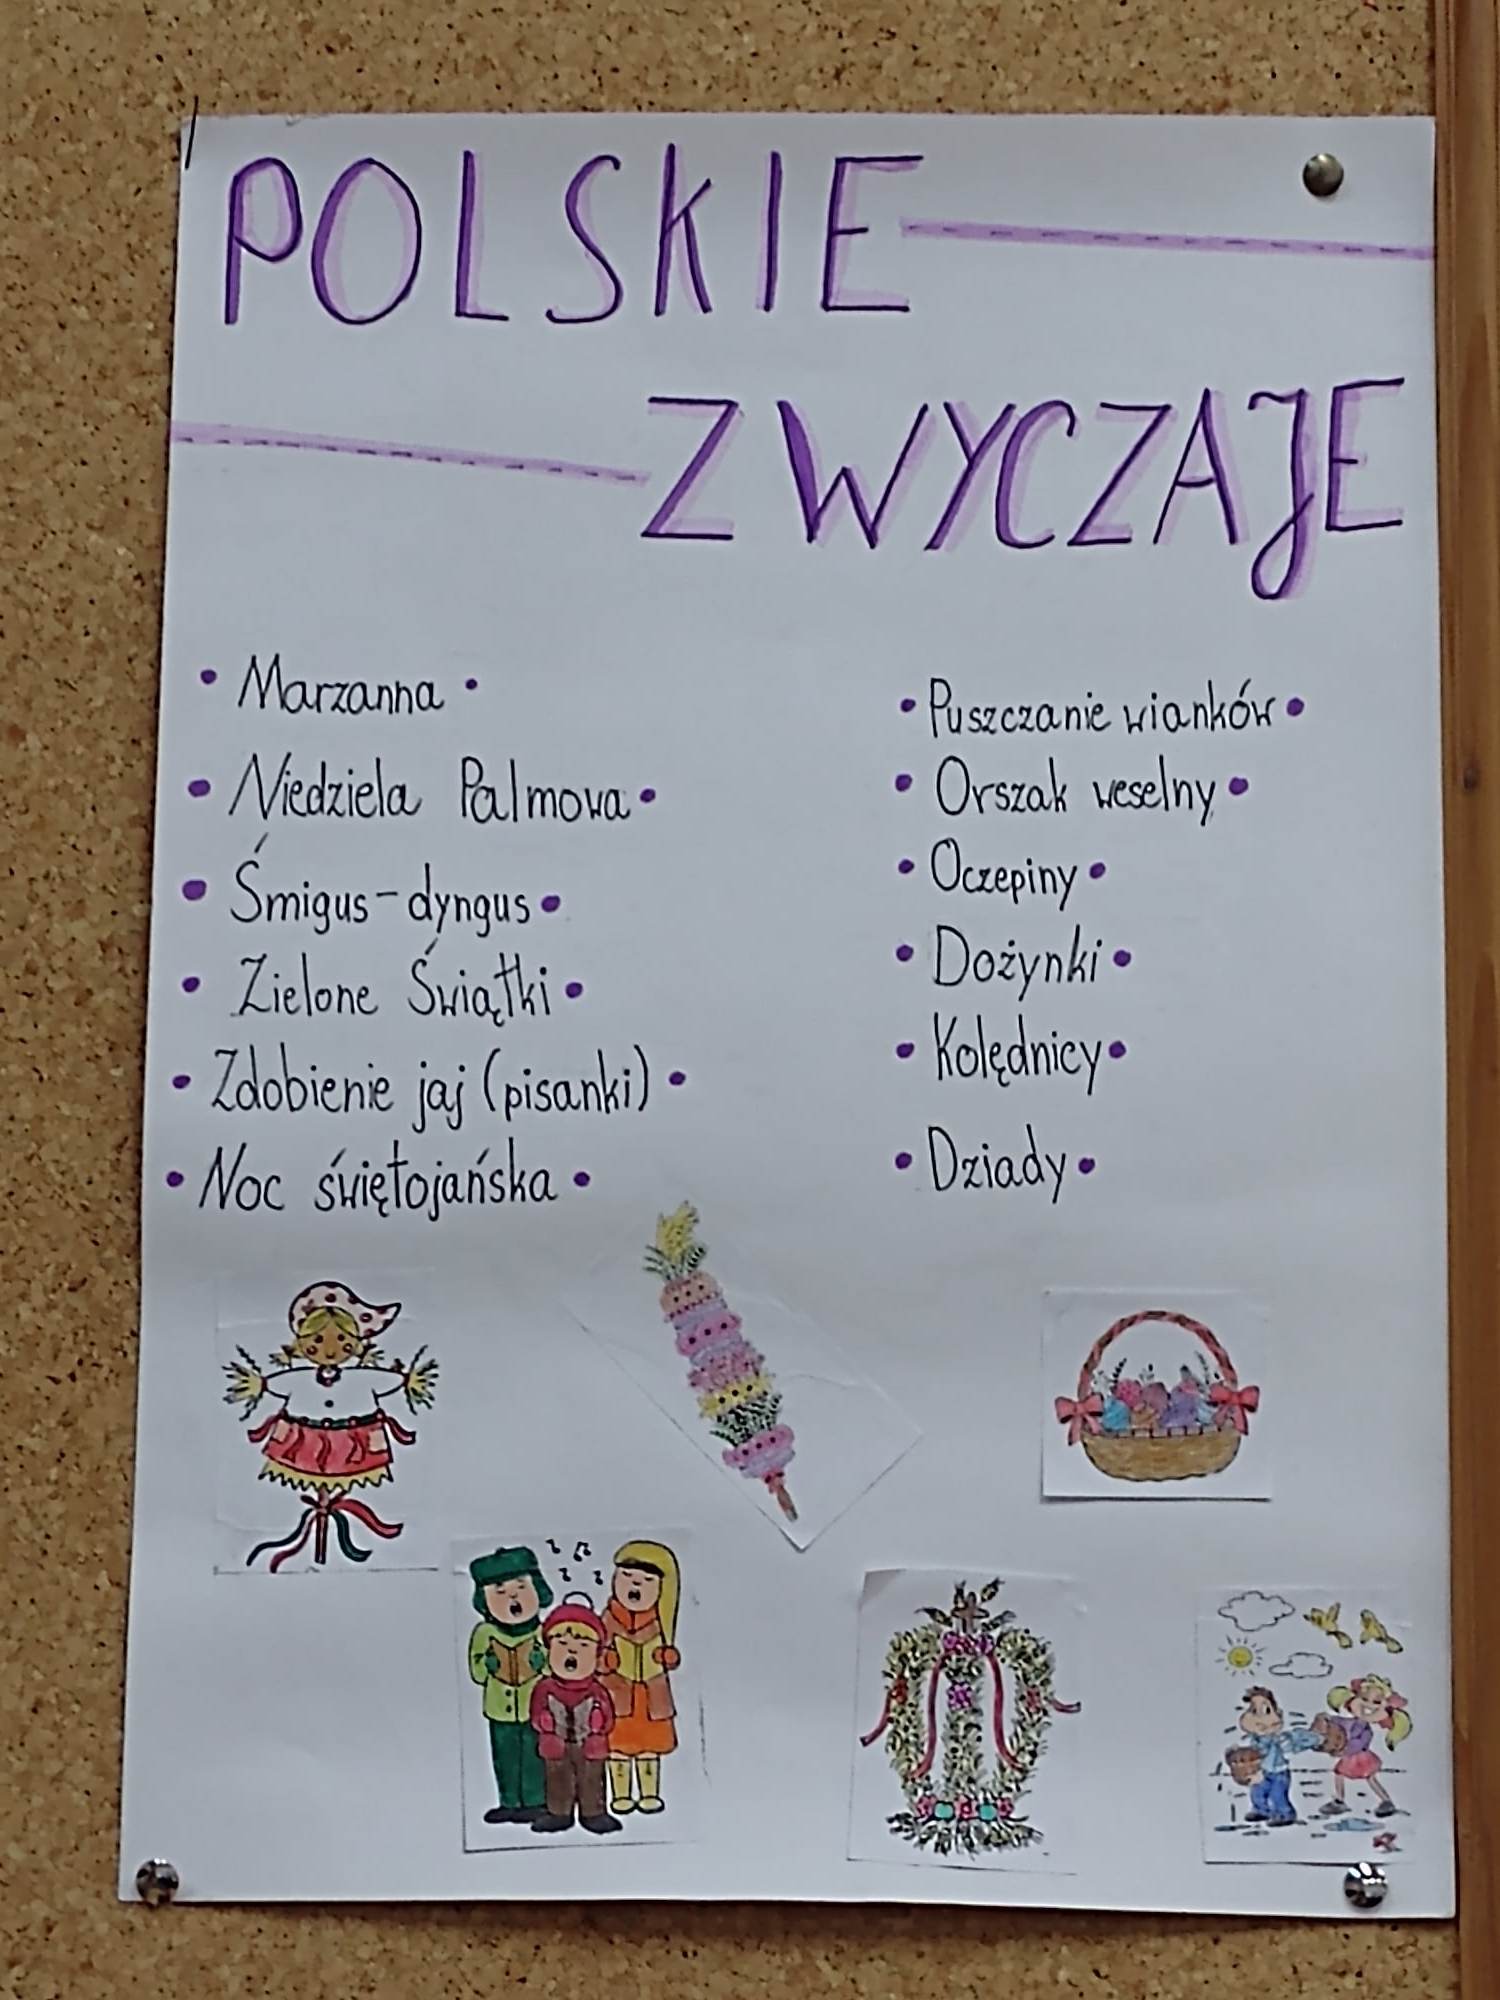 POLSKIE
ZWYCZAJE
• Marzanna •
• Niedziela Palmowa •
• Śmigus-dyngus •
• Zielone Świątki •
• Zdobienie jaj (pisanki) •
• Noc świętojańska •
• Puszczanie wianków •
• Orszak weselny •
• Oczepiny •
• Dożynki •
• Kolędnicy •
• Dziady •